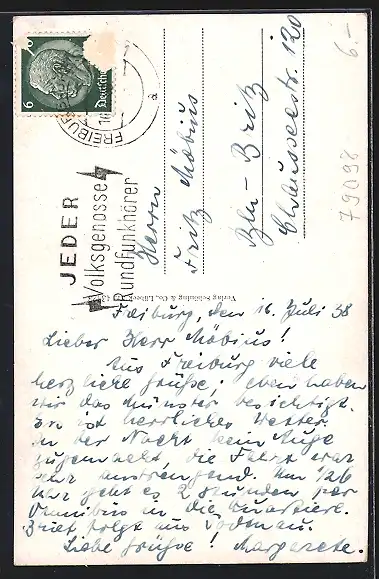 6 6
Deutsches
FREIBURG
JEDER
Volksgenosse
Rundfunkhörer
Herrn
Fritz Möbius
Bln-Britz
Chausseestr. 120
6.-
79098
Verlag Schöning & Co., Lübeck
Freiburg, den 16. Juli 38
Lieber Herr Möbius!
Aus Freiburg viele
herzliche Grüße! Eben haben
wir das Münster besichtigt.
Es ist herrliches Wetter.
In der Nacht kein Auge
zugemacht die Fahrt war
sehr anstrengend. Um 1/26
Uhr geht es 2 Stunden per
Omnibus in die Quartiere.
Brief folgt aus Todtnau.
Liebe Grüße! Margarete.